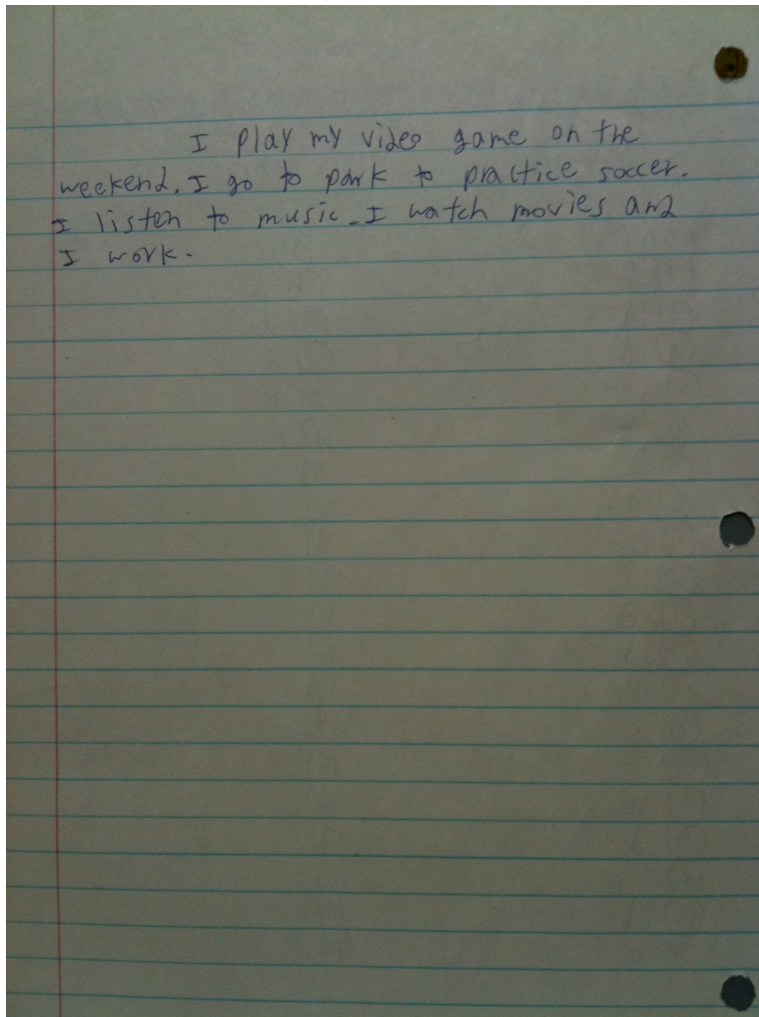 I play my video game on the
weekend. I go to park to practice soccer.
I listen to music. I watch movies and
I work.